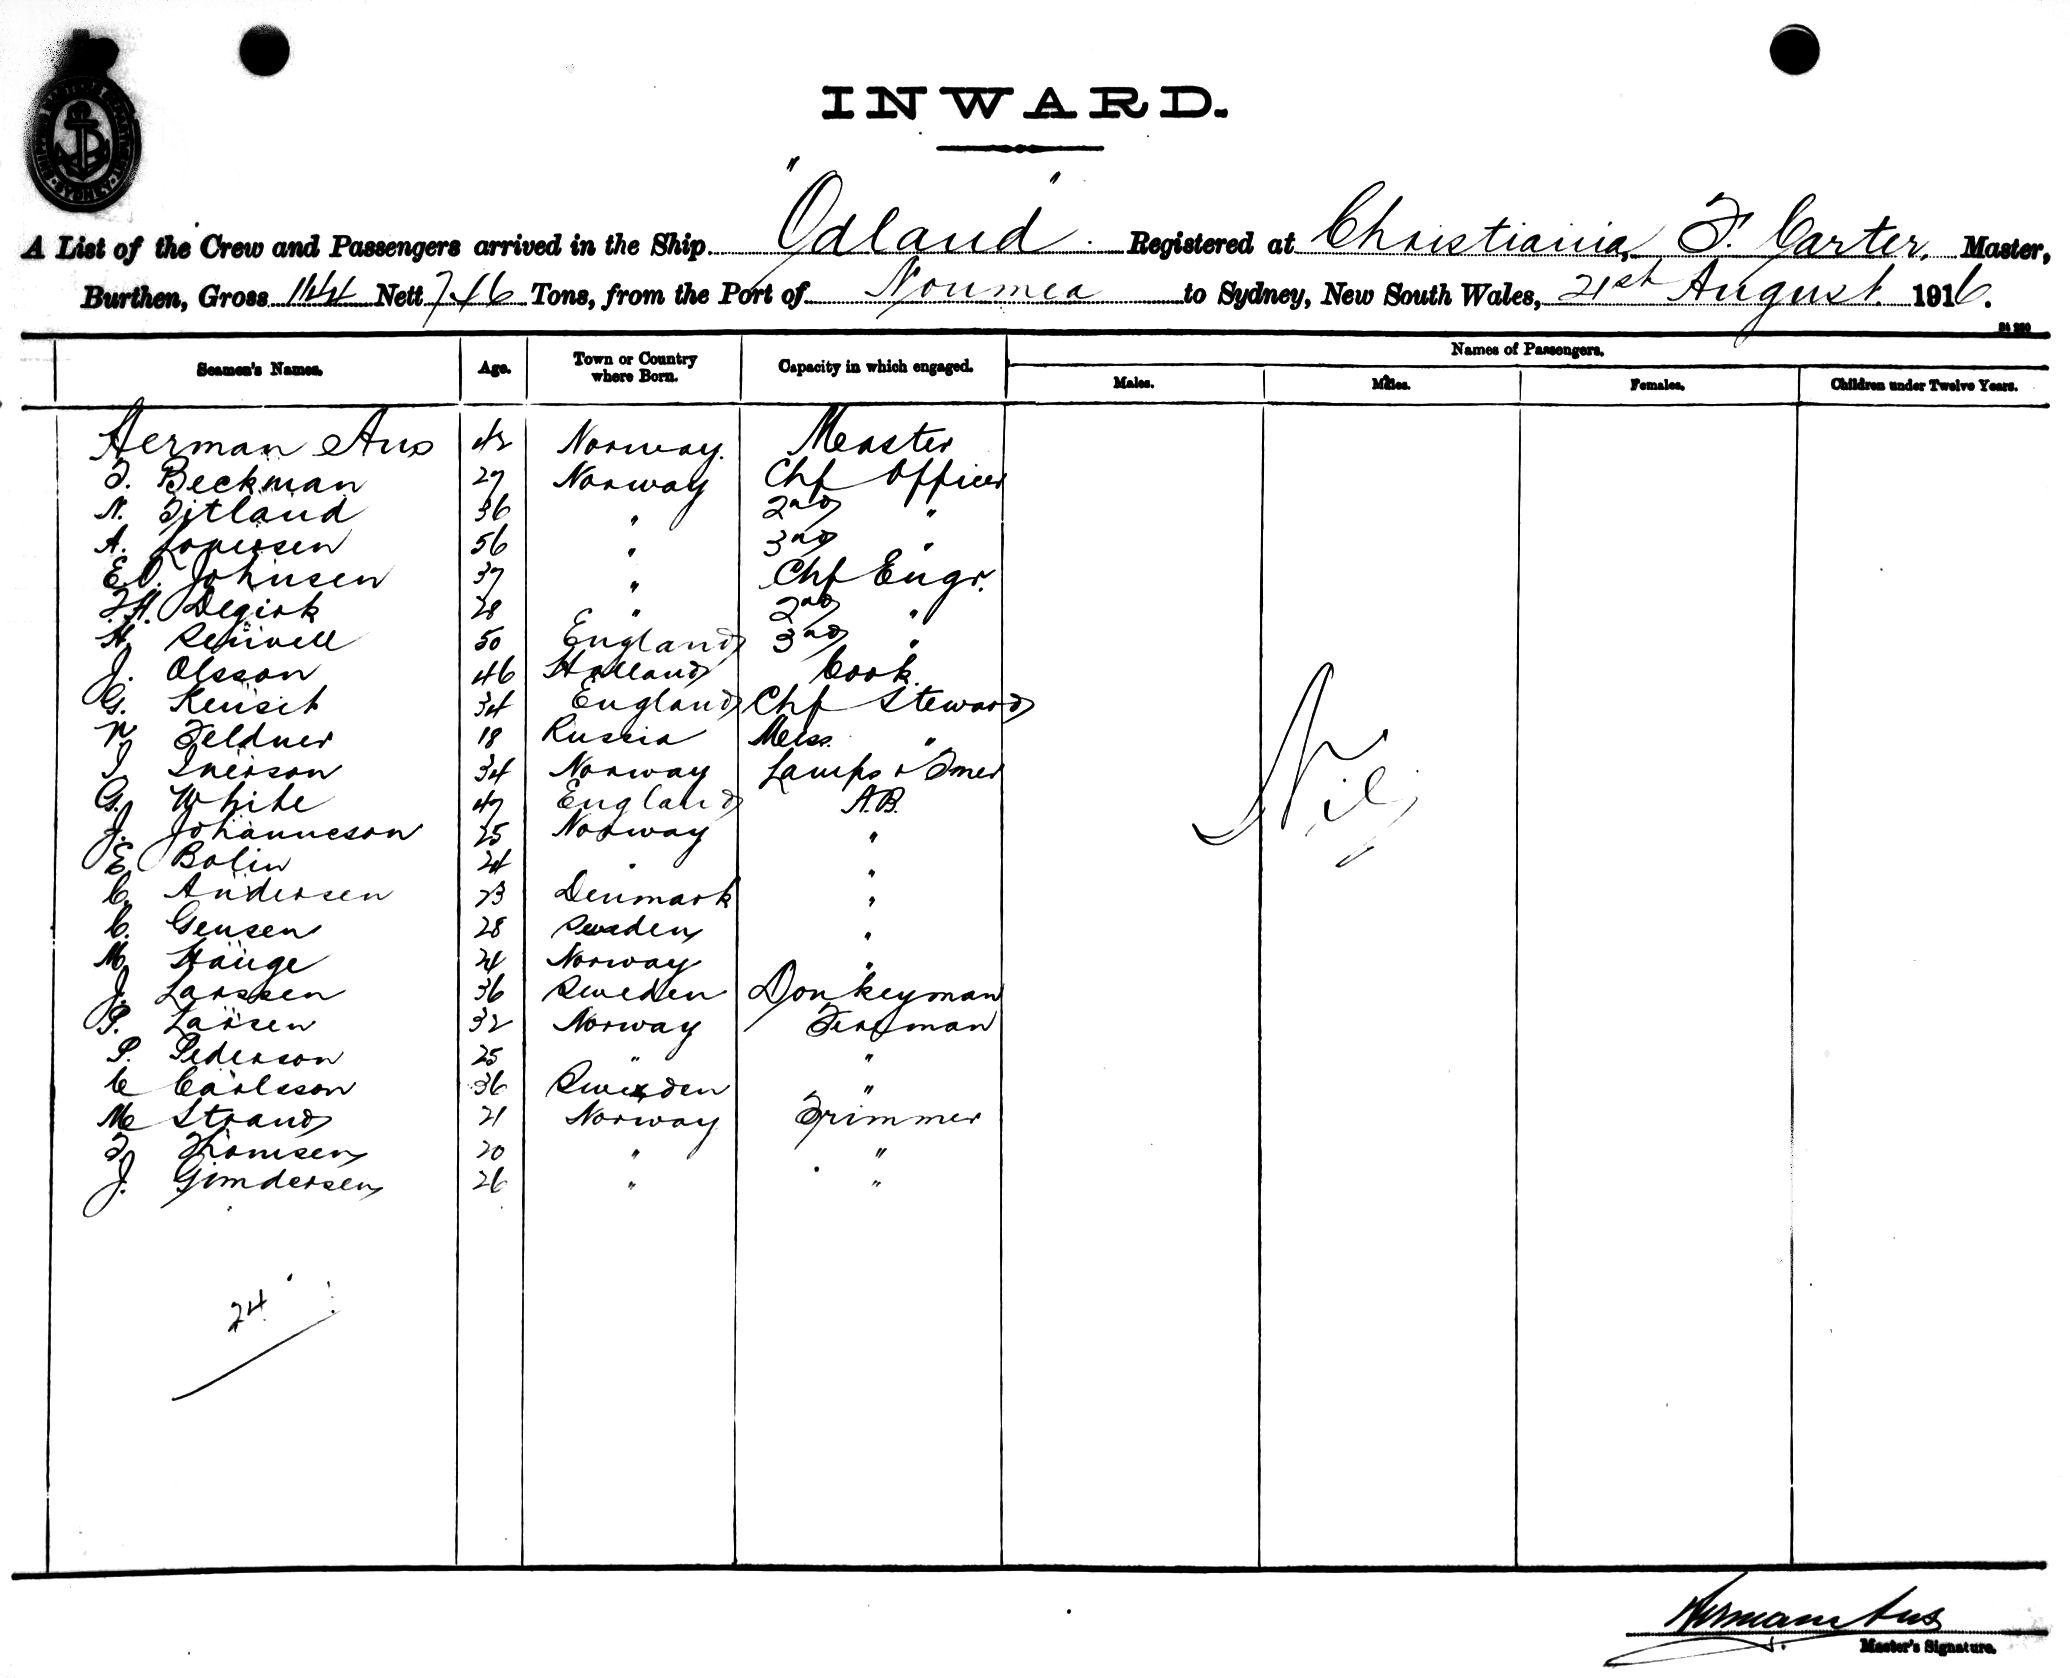 INWARD.
A List of the Crew and Passengers arrived in the Ship "Odland". Registered at Christiania, F. Carter, Master,
Burthen, Gross 1144 Nett 746 Tons, from the Port of Noumea to Sydney, New South Wales, 21st August 1916.
Seamen's Names. Age. Town or Country where Born. Capacity in which engaged. Names of Passengers.
Males. Males. Females. Children under Twelve Years.
Herman Aus 42 Norway. Master
F. Beckman 27 Norway Chf Officer
N. Fitland 36 " 2nd "
A. 56 " 3rd "
E.O. Johnsen 37 " Chf Engr.
28 " 2nd "
H. 50 England 3rd "
J. Olsson 46 Holland Cook
G. 34 England Chf Steward
Feldner 18 Russia Mess "
I Iverson 34 Norway Lamps &
G. White 47 England A.B.
J. Johanneson 25 Norway "
E Bolin 24 " "
C. Andersen 23 Denmark "
C. Gensen 28 Sweden "
M Hauge 24 Norway "
J. Larssen 36 Sweden Donkeyman
P. Larsen 32 Norway Fireman
P. Pederson 25 " "
C Carlsson 36 Sweden "
M Strand 21 Norway Trimmer
F. Thomsen 20 " "
J. Gundersen 26 " "
Nil
24
Herman Aus
Master's Signature.